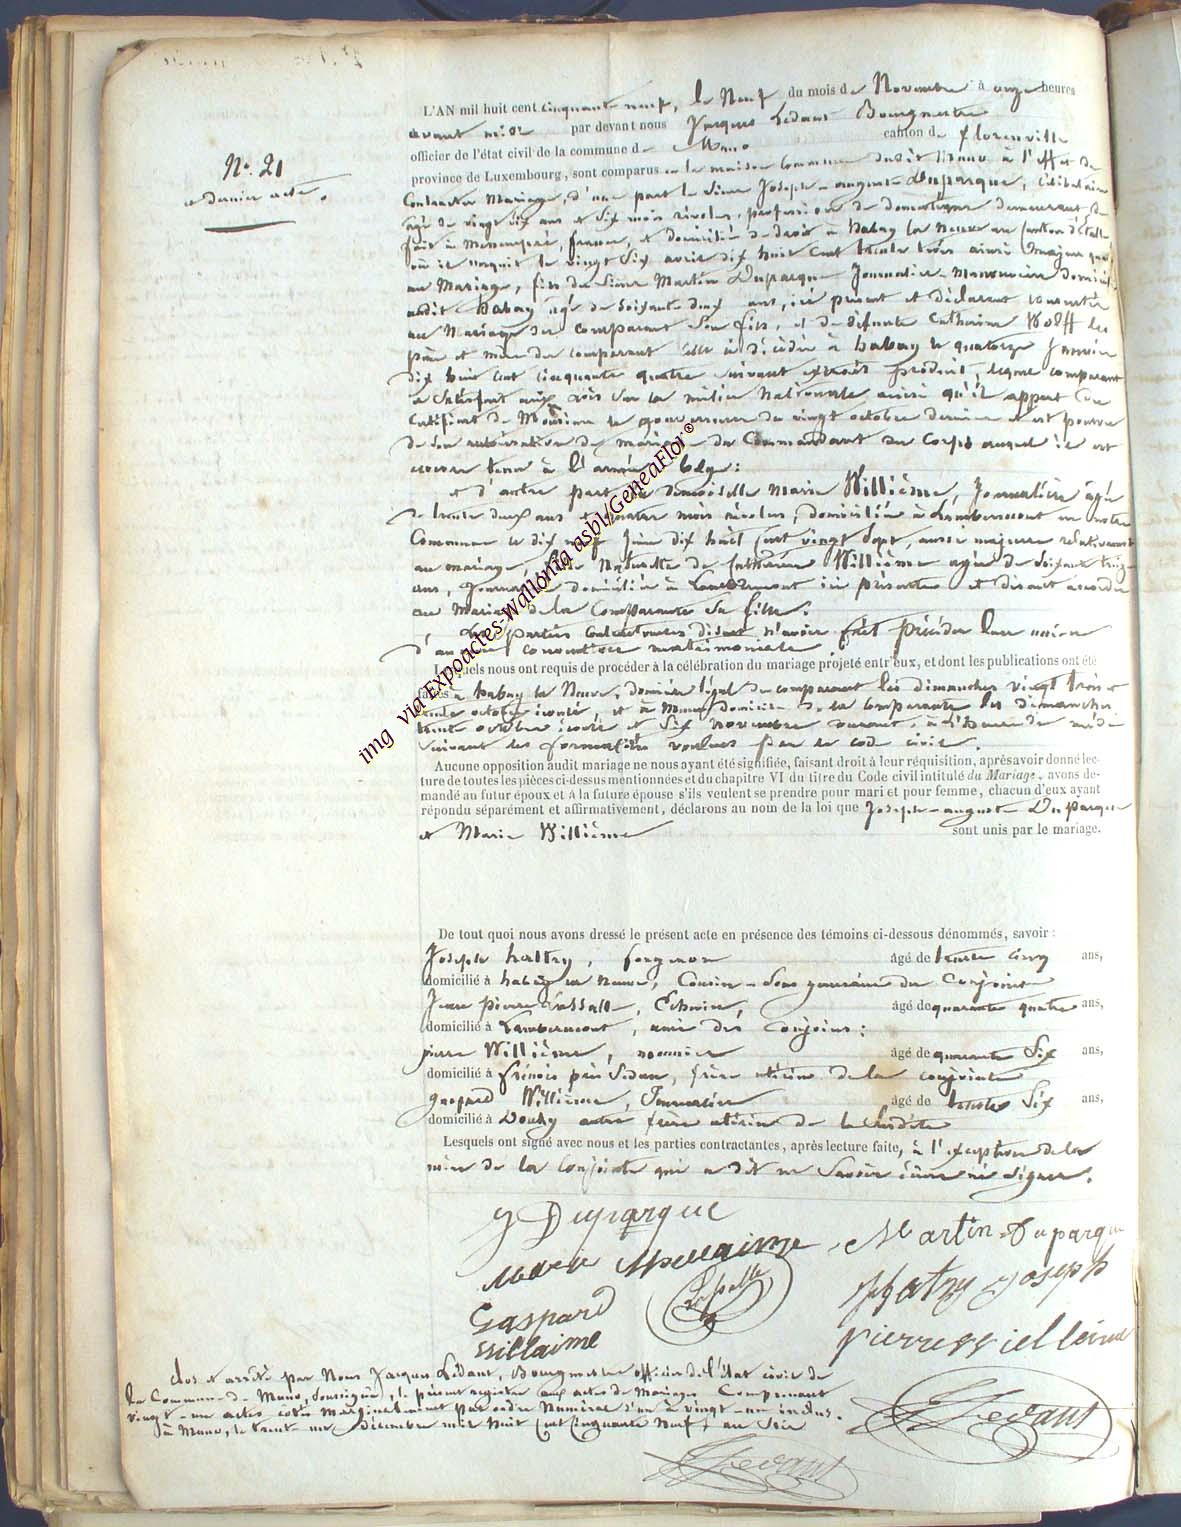 N.° 21
et dernier acte.
L'AN mil huit cent cinquante neuf, le Neuf du mois de Novembre à onze heures
avant midi par devant nous Jacques Lédant Bourgmestre
officier de l'état civil de la commune de Muno canton de Florenville
province de Luxembourg, sont comparus en la maison Commune dudit Muno à l'effet de
Contracter Mariage, d'une part le Sieur Joseph-auguste Duparque, Célibataire
âgé de vingt six ans et Six mois révolus, profession de domestique demeurant de
fait à france, et domicilié de droit à habay la Neuve canton d'Etalle
où il naquit le vingt Six avril dix huit Cent trente trois ainsi Majeur quant
au Mariage, fils du Sieur Martin Duparque Journalier-Manouvrier domicilié
audit habay âgé de Soixante deux ans, ici présent et déclarant consentir
au Mariage du comparant Son fils, et de défunte Catherine Wolff les
père et mère du comparant celle ci décédée à habay le quatorze Janvier
dix huit cent cinquante quatre suivant extrait produit, lequel comparant
a Satisfait aux lois Sur la milice Nationale ainsi qu'il appert du
Certificat de Monsieur le gouverneur du vingt octobre dernier et est pourvu
de Son autorisation de mariage du Commandant du Corps auquel il est
encore tenu à l'armée belge :
et d'autre part la demoiselle Marie Willième, Journalière âgée
de trente deux ans et quatre mois révolus, domiciliée à Lambermont en notre
Commune le dix neuf Juin dix huit Cent vingt Sept, aussi majeure relativement
au mariage, fille Naturelle de Catherine Willième agée de Soixante
ans, Journalière domiciliée à Lambermont ici présente et disant accorder
au Mariage de la Comparante Sa fille.
Les parties Contractantes disent n'avoir fait précéder leur union
d'aucune convention matrimoniale.
Lesquels nous ont requis de procéder à la célébration du mariage projeté entr'eux, et dont les publications ont été
faites à habay la Neuve, domicile légal du comparant les dimanches vingt trois et
trente octobre écoulé, et à Muno domicile de la comparante les dimanches
trente octobre écoulé et Six novembre courant, à l'heure de midi
suivant les formalités voulues par le code civil.
Aucune opposition audit mariage ne nous ayant été signifiée, faisant droit à leur réquisition, après avoir donné lec-
ture de toutes les pièces ci-dessus mentionnées et du chapitre VI du titre du Code civil intitulé du Mariage, avons de-
mandé au futur époux et à la future épouse s'ils veulent se prendre pour mari et pour femme, chacun d'eux ayant
répondu séparément et affirmativement, déclarons au nom de la loi que Joseph-auguste Duparque
et Marie Willième sont unis par le mariage.
De tout quoi nous avons dressé le présent acte en présence des témoins ci-dessous dénommés, savoir :
Joseph hattry, forgeron âgé de trente cinq ans,
domicilié à habay la Neuve, Cousin-Sous germain du Conjoint
Jean pierre Lassalle, Echevin, âgé de quarante quatre ans,
domicilié à Lambermont, ami des Conjoins ;
pierre Willième, meunier âgé de quarante Six ans,
domicilié à frénois près Sedan, frère utérin de la conjointe
gaspard Willième, Journalier âgé de trente Six ans,
domicilié à Douzy autre frère utérin de la Susdite
Lesquels ont signé avec nous et les parties contractantes, après lecture faite, à l'exception de la
mère de la Conjointe qui a dit ne Savoir écrire ni Signer.
J Duparque
Marie Willaime Martin Duparque
Hatry Joseph
Gaspard
Willaime
Pierre Willeime
J Ledant
Clos et arrêté par Nous Jacques Lédant, Bourgmestre officier de l'état civil de
la Commune de Muno, Soussigné, le présent registre aux actes de Mariages Comprenant
vingt-un actes cotés marginalement par ordre Numéral d'un à vingt-un inclus.
à Muno, le trente-un Décembre mil huit Cent Cinquante Neuf, au Soir
J Ledant
img via Expoactes-Wallonia asbl/GeneaFloi ®